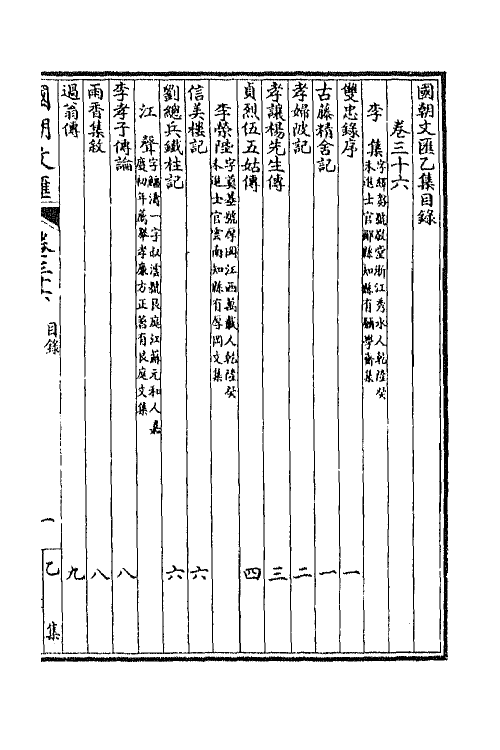 國朝文匯乙集目錄
卷三十六
李集 字繹芻號敬堂浙江秀水人乾隆癸
未進士官鄖縣知縣有願學齋集
雙忠錄序 一
古藤精舍記 一
孝婦陂記 二
孝讓楊先生傳 三
貞烈伍五姑傳 四
李榮陛 字奠基號厚岡江西萬載人乾隆癸
未進士官雲南知縣有厚岡文集
信美樓記 六
劉總兵鐵柱記 六
江聲 字鱷濤一字叔澐號艮庭江蘇元和人嘉
慶初年薦舉孝廉方正著有艮庭文集
李孝子傳論 八
雨香集敘 八
過翁傳 九
國朝文匯 卷三十六 目錄 一 乙集